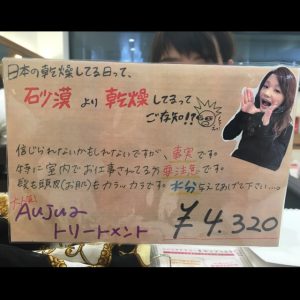 日本の乾燥してる日って、
石少漠 より 乾燥 してるって
ご存知!?
信じられないかもしれないですが、事実です。
特に室内でお仕事されてる方要注意です。
髪も頭皮(お肌)もカラッカラです。水分与えてあげて下さい…。
大人気!
Aujua
トリートメント
¥4.320